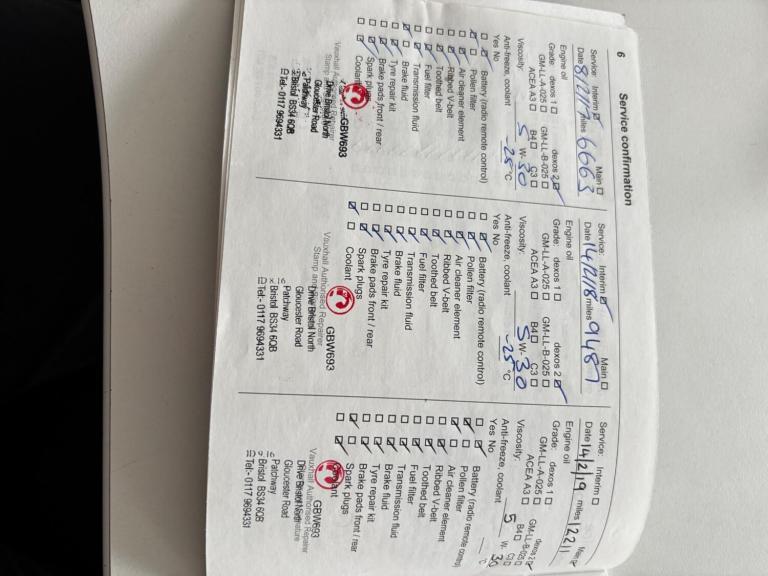 6 Service confirmation
Service: Interim ☑ Main ☐
Date 8/2/17 miles 6663
Engine oil
Grade: dexos 1 ☐ dexos 2 ☑
GM-LL-A-025 ☐ GM-LL-B-025 ☐
ACEA A3 ☐ B4 ☐ C3 ☐
Viscosity: 5 W- 30
Anti-freeze, coolant -25 °C
Yes No
Battery (radio remote control)
Pollen filter
Air cleaner element
Ribbed V-belt
Toothed belt
Fuel filter
Transmission fluid
Brake fluid
Tyre repair kit
Brake pads front / rear
Spark plugs
Coolant
GBW693
Drive Bristol North
Gloucester Road
Patchway
Bristol BS34 6QB
Tel:- 0117 9694331
Service: Interim ☑ Main ☐
Date 14/2/18 miles 9487
Engine oil
Grade: dexos 1 ☐ dexos 2 ☑
GM-LL-A-025 ☐ GM-LL-B-025 ☐
ACEA A3 ☐ B4 ☐ C3 ☐
Viscosity: 5 W- 30
Anti-freeze, coolant -25 °C
Yes No
Battery (radio remote control)
Pollen filter
Air cleaner element
Ribbed V-belt
Toothed belt
Fuel filter
Transmission fluid
Brake fluid
Tyre repair kit
Brake pads front / rear
Spark plugs
Coolant
Vauxhall Authorised Repairer
GBW693
Drive Bristol North
Gloucester Road
Patchway
Bristol BS34 6QB
Tel:- 0117 9694331
Service: Interim ☐
Date 14/2/19 miles 12211
Engine oil
Grade: dexos 1 ☐ dexos 2
GM-LL-A-025 ☐ GM-LL-B-025
ACEA A3 ☐ B4 ☐ C3
Viscosity: 5 W- 30
Anti-freeze, coolant
Yes No
Battery (radio remote control)
Pollen filter
Air cleaner element
Ribbed V-belt
Toothed belt
Fuel filter
Transmission fluid
Brake fluid
Tyre repair kit
Brake pads front / rear
Spark plugs
Coolant
GBW693
Vauxhall Authorised Repairer
Drive Bristol North
Gloucester Road
Patchway
Bristol BS34 6QB
Tel:- 0117 9694331